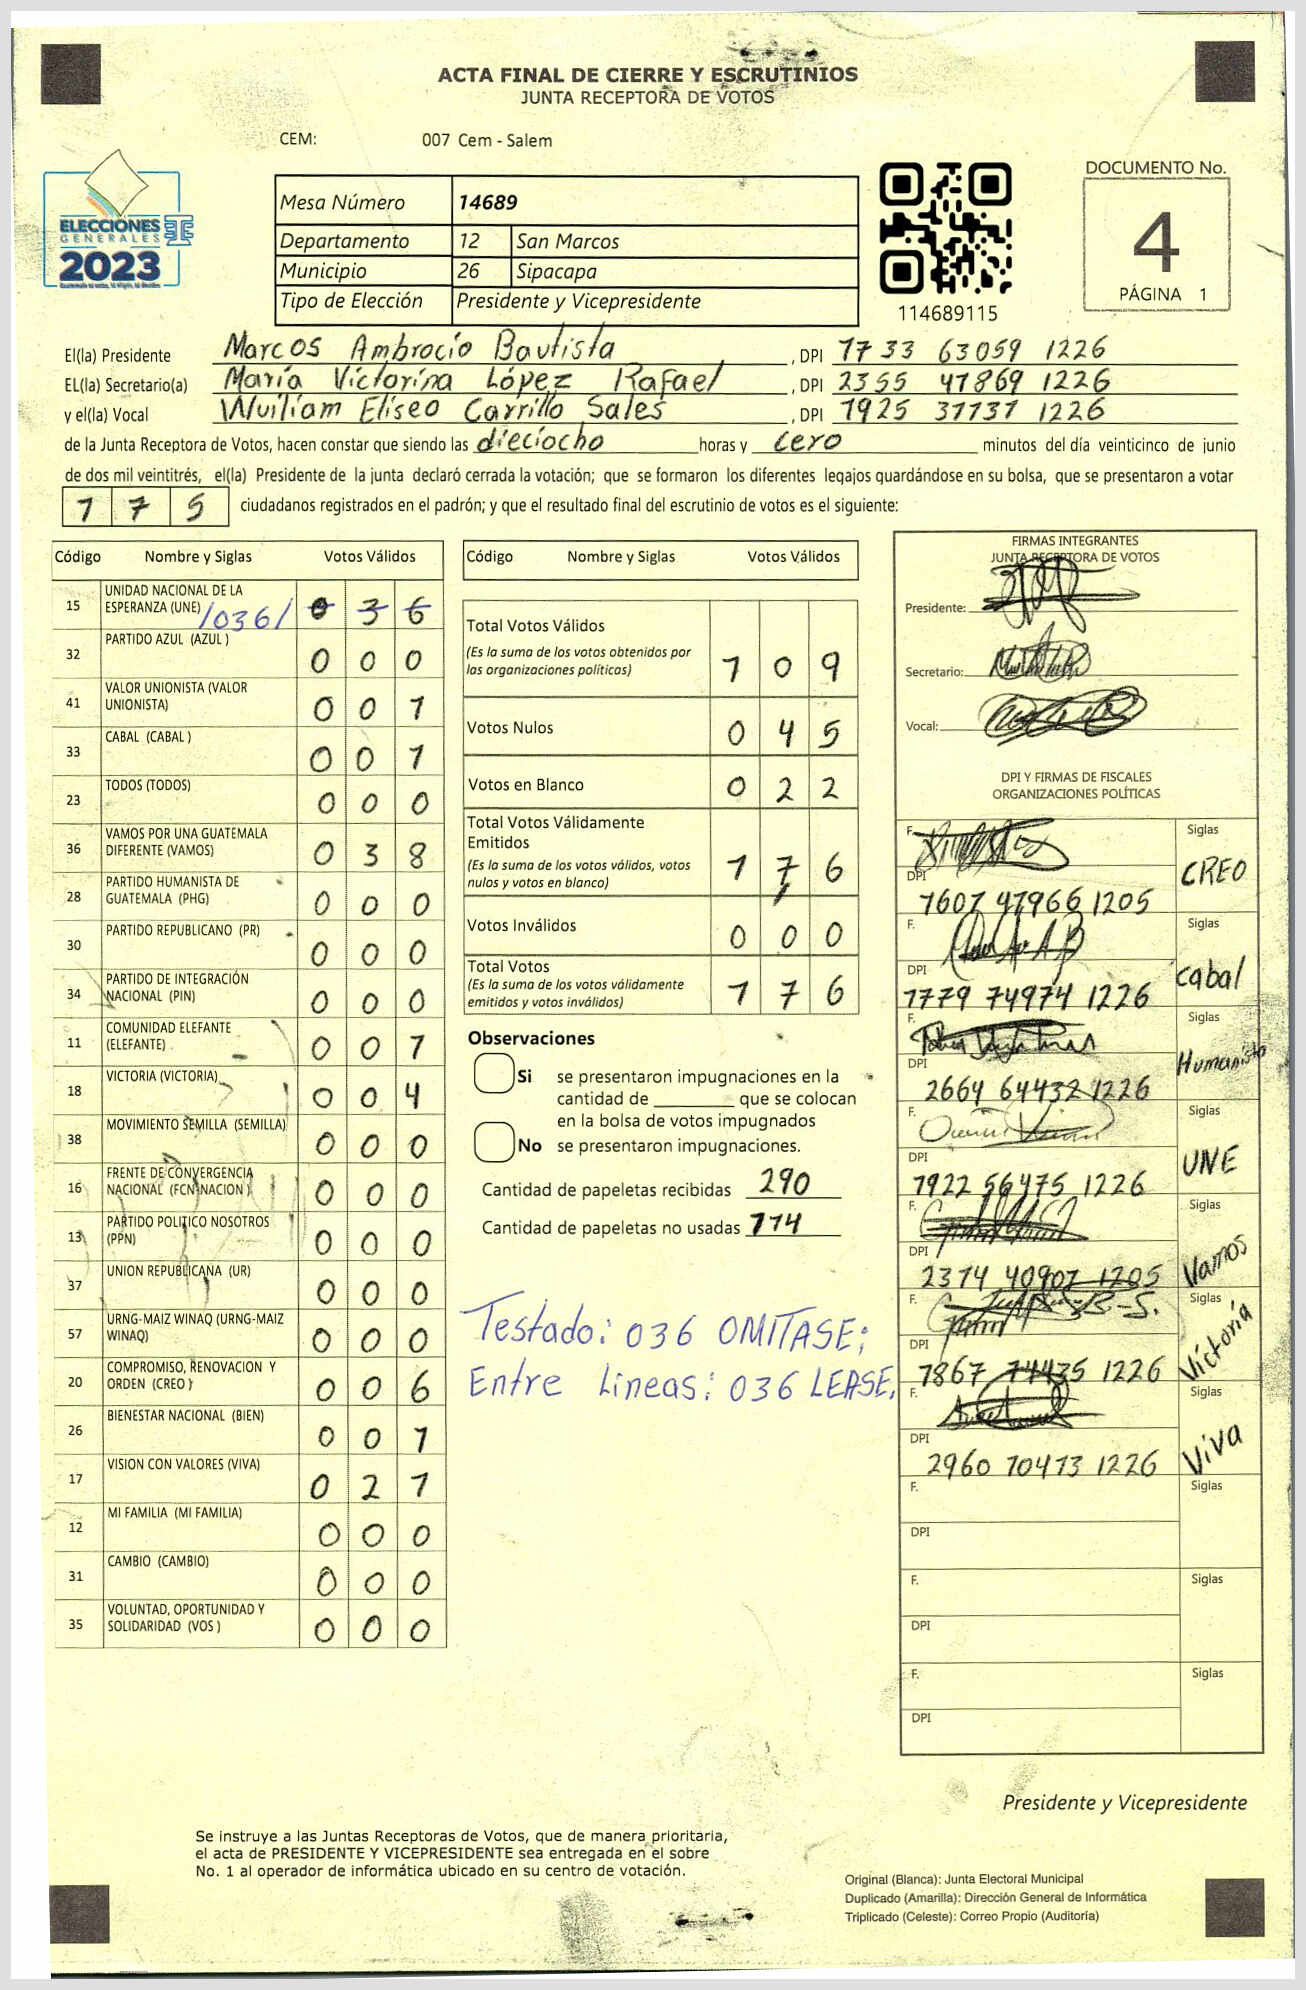 ACTA FINAL DE CIERRE Y ESCRUTINIOS
JUNTA RECEPTORA DE VOTOS
CEM: 007 Cem - Salem
ELECCIONES
GENERALES
2023
Mesa Número 14689
Departamento 12 San Marcos
Municipio 26 Sipacapa
Tipo de Elección Presidente y Vicepresidente
114689115
DOCUMENTO No.
4
PÁGINA 1
El(la) Presidente Marcos Ambrocio Bautista , DPI 1733 63059 1226
EL(la) Secretario(a) María Victorina López Rafael , DPI 2355 47869 1226
y el(la) Vocal Wuiliam Eliseo Carrillo Sales , DPI 1925 31131 1226
de la Junta Receptora de Votos, hacen constar que siendo las dieciocho horas y cero minutos del día veinticinco de junio
de dos mil veintitrés, el(la) Presidente de la junta declaró cerrada la votación; que se formaron los diferentes legajos guardándose en su bolsa, que se presentaron a votar
1 7 5 ciudadanos registrados en el padrón; y que el resultado final del escrutinio de votos es el siguiente:
Código Nombre y Siglas Votos Válidos
15 UNIDAD NACIONAL DE LA
ESPERANZA (UNE) /036/ 0 3 6
32 PARTIDO AZUL (AZUL ) 0 0 0
41 VALOR UNIONISTA (VALOR
UNIONISTA) 0 0 1
33 CABAL (CABAL ) 0 0 1
23 TODOS (TODOS) 0 0 0
36 VAMOS POR UNA GUATEMALA
DIFERENTE (VAMOS) 0 3 8
28 PARTIDO HUMANISTA DE
GUATEMALA (PHG) 0 0 0
30 PARTIDO REPUBLICANO (PR) 0 0 0
34 PARTIDO DE INTEGRACIÓN
NACIONAL (PIN) 0 0 0
11 COMUNIDAD ELEFANTE
(ELEFANTE) 0 0 1
18 VICTORIA (VICTORIA) 0 0 4
38 MOVIMIENTO SEMILLA (SEMILLA) 0 0 0
16 FRENTE DE CONVERGENCIA
NACIONAL (FCN-NACION ) 0 0 0
13 PARTIDO POLITICO NOSOTROS
(PPN) 0 0 0
37 UNION REPUBLICANA (UR) 0 0 0
57 URNG-MAIZ WINAQ (URNG-MAIZ
WINAQ) 0 0 0
20 COMPROMISO, RENOVACION Y
ORDEN (CREO ) 0 0 6
26 BIENESTAR NACIONAL (BIEN) 0 0 1
17 VISION CON VALORES (VIVA) 0 2 1
12 MI FAMILIA (MI FAMILIA) 0 0 0
31 CAMBIO (CAMBIO) 0 0 0
35 VOLUNTAD, OPORTUNIDAD Y
SOLIDARIDAD (VOS ) 0 0 0
Código Nombre y Siglas Votos Válidos
Total Votos Válidos
(Es la suma de los votos obtenidos por
las organizaciones políticas) 1 0 9
Votos Nulos 0 4 5
Votos en Blanco 0 2 2
Total Votos Válidamente
Emitidos
(Es la suma de los votos válidos, votos
nulos y votos en blanco) 1 7 6
Votos Inválidos 0 0 0
Total Votos
(Es la suma de los votos válidamente
emitidos y votos inválidos) 1 7 6
Observaciones
Si se presentaron impugnaciones en la
cantidad de ________ que se colocan
en la bolsa de votos impugnados
No se presentaron impugnaciones.
Cantidad de papeletas recibidas 290
Cantidad de papeletas no usadas 114
Testado: 036 OMITASE;
Entre Lineas: 036 LEASE.
FIRMAS INTEGRANTES
JUNTA RECEPTORA DE VOTOS
Presidente:
Secretario:
Vocal:
DPI Y FIRMAS DE FISCALES
ORGANIZACIONES POLÍTICAS
F. Siglas
DPI 1607 47966 1205 CREO
F. Siglas
DPI 1779 74974 1226 Cabal
F. Siglas
DPI 2664 64432 1226 Humanista
F. Siglas
DPI 1922 56475 1226 UNE
F. Siglas
DPI 2314 40907 1205 Vamos
F. Siglas
DPI 1867 71435 1226 Victoria
F. Siglas
DPI 2960 10473 1226 Viva
F. Siglas
DPI
F. Siglas
DPI
F. Siglas
DPI
Presidente y Vicepresidente
Se instruye a las Juntas Receptoras de Votos, que de manera prioritaria,
el acta de PRESIDENTE Y VICEPRESIDENTE sea entregada en el sobre
No. 1 al operador de informática ubicado en su centro de votación.
Original (Blanca): Junta Electoral Municipal
Duplicado (Amarilla): Dirección General de Informática
Triplicado (Celeste): Correo Propio (Auditoría)